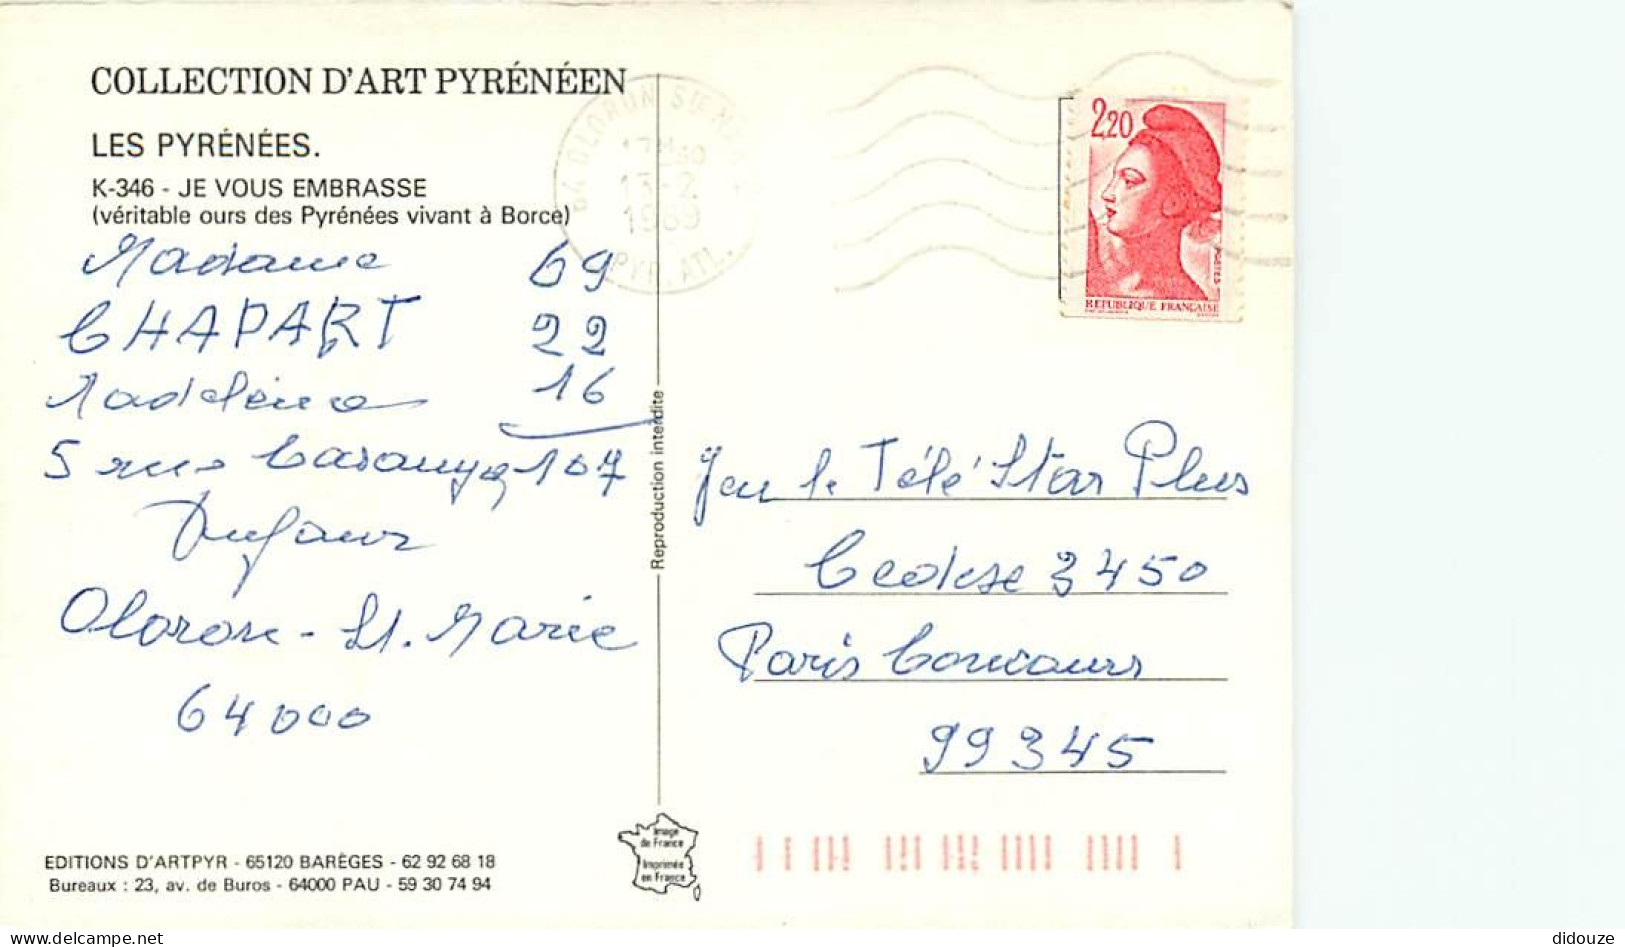 COLLECTION D'ART PYRÉNÉEN
LES PYRÉNÉES.
K-346 - JE VOUS EMBRASSE
(véritable ours des Pyrénées vivant à Borce)
Madame 69
CHAPART 22
Madeleine 16
5 rue 107
Dufour
Oloron-St. Marie
64000
EDITIONS D'ARTPYR - 65120 BARÈGES - 62 92 68 18
Bureaux : 23, av. de Buros - 64000 PAU - 59 30 74 94
Reproduction interdite
Image
de France
Imprimée
en France
64 OLORON STE MARIE
13-2
1989
PYR. ATL.
2,20
POSTES
REPUBLIQUE FRANÇAISE
Jeu le Télé Star Plus
Cedex 3450
Paris Concours
99345
didouze